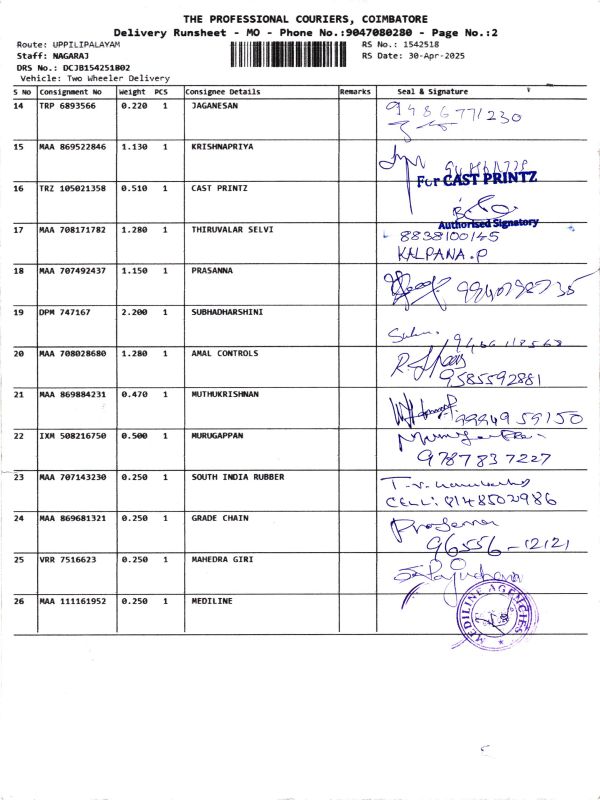 THE PROFESSIONAL COURIERS, COIMBATORE
Delivery Runsheet - MO - Phone No.:9047080280 - Page No.:2
Route: UPPILIPALAYAM
RS No.: 1542518
Staff: NAGARAJ
RS Date: 30-Apr-2025
DRS No.: DCJB154251802
Vehicle: Two Wheeler Delivery
S No Consignment No Weight PCS Consignee Details Remarks Seal & Signature
14 TRP 6893566 0.220 1 JAGANESAN
9486771230
15 MAA 869522846 1.130 1 KRISHNAPRIYA
16 TRZ 105021358 0.510 1 CAST PRINTZ
For CAST PRINTZ
Authorised Signatory
17 MAA 708171782 1.280 1 THIRUVALAR SELVI
8838100145
KALPANA.P
18 MAA 707492437 1.150 1 PRASANNA
19 DPM 747167 2.200 1 SUBHADHARSHINI
20 MAA 708028680 1.280 1 AMAL CONTROLS
9585592881
21 MAA 869884231 0.470 1 MUTHUKRISHNAN
99949 59150
22 IXM 508216750 0.500 1 MURUGAPPAN
9787837227
23 MAA 707143230 0.250 1 SOUTH INDIA RUBBER
CELL: 8148502986
24 MAA 869681321 0.250 1 GRADE CHAIN
96556-12121
25 VRR 7516623 0.250 1 MAHEDRA GIRI
26 MAA 111161952 0.250 1 MEDILINE
MEDILINE AGENCIES